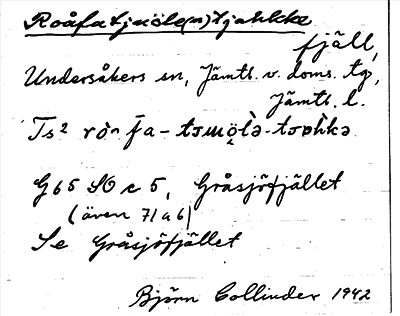 Roåfatjuöle(n)tjahkke
fjäll,
Undersåkers sn, Jämtl. v. doms. tg,
Jämtl. l.
Ts²
G65 SO c 5, Gråsjöfjället
(även 71 a 6)
Se Gråsjöfjället
Björn Collinder 1942